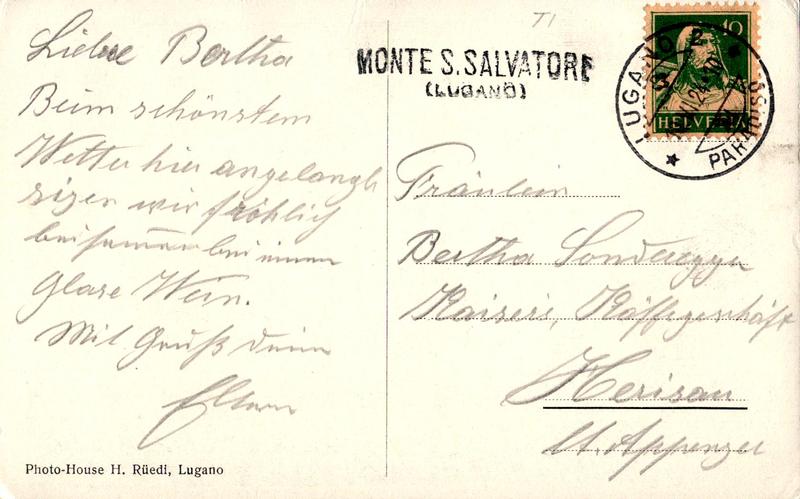 Liebe Bertha
Beim schönstem
Wetter hier angelangt
sizen wir fröhlich
beisammen bei einem
Glase Wein.
Mit Gruß deine
Eltern
Photo-House H. Rüedi, Lugano
T1
MONTE S. SALVATORE
(LUGANO)
10
HELVETIA
LUGANO 2
PARADISO
Fräulein
Bertha Sonderegger
Kaisers, Käffegeschäft
Herisau
Kt. Appenzel